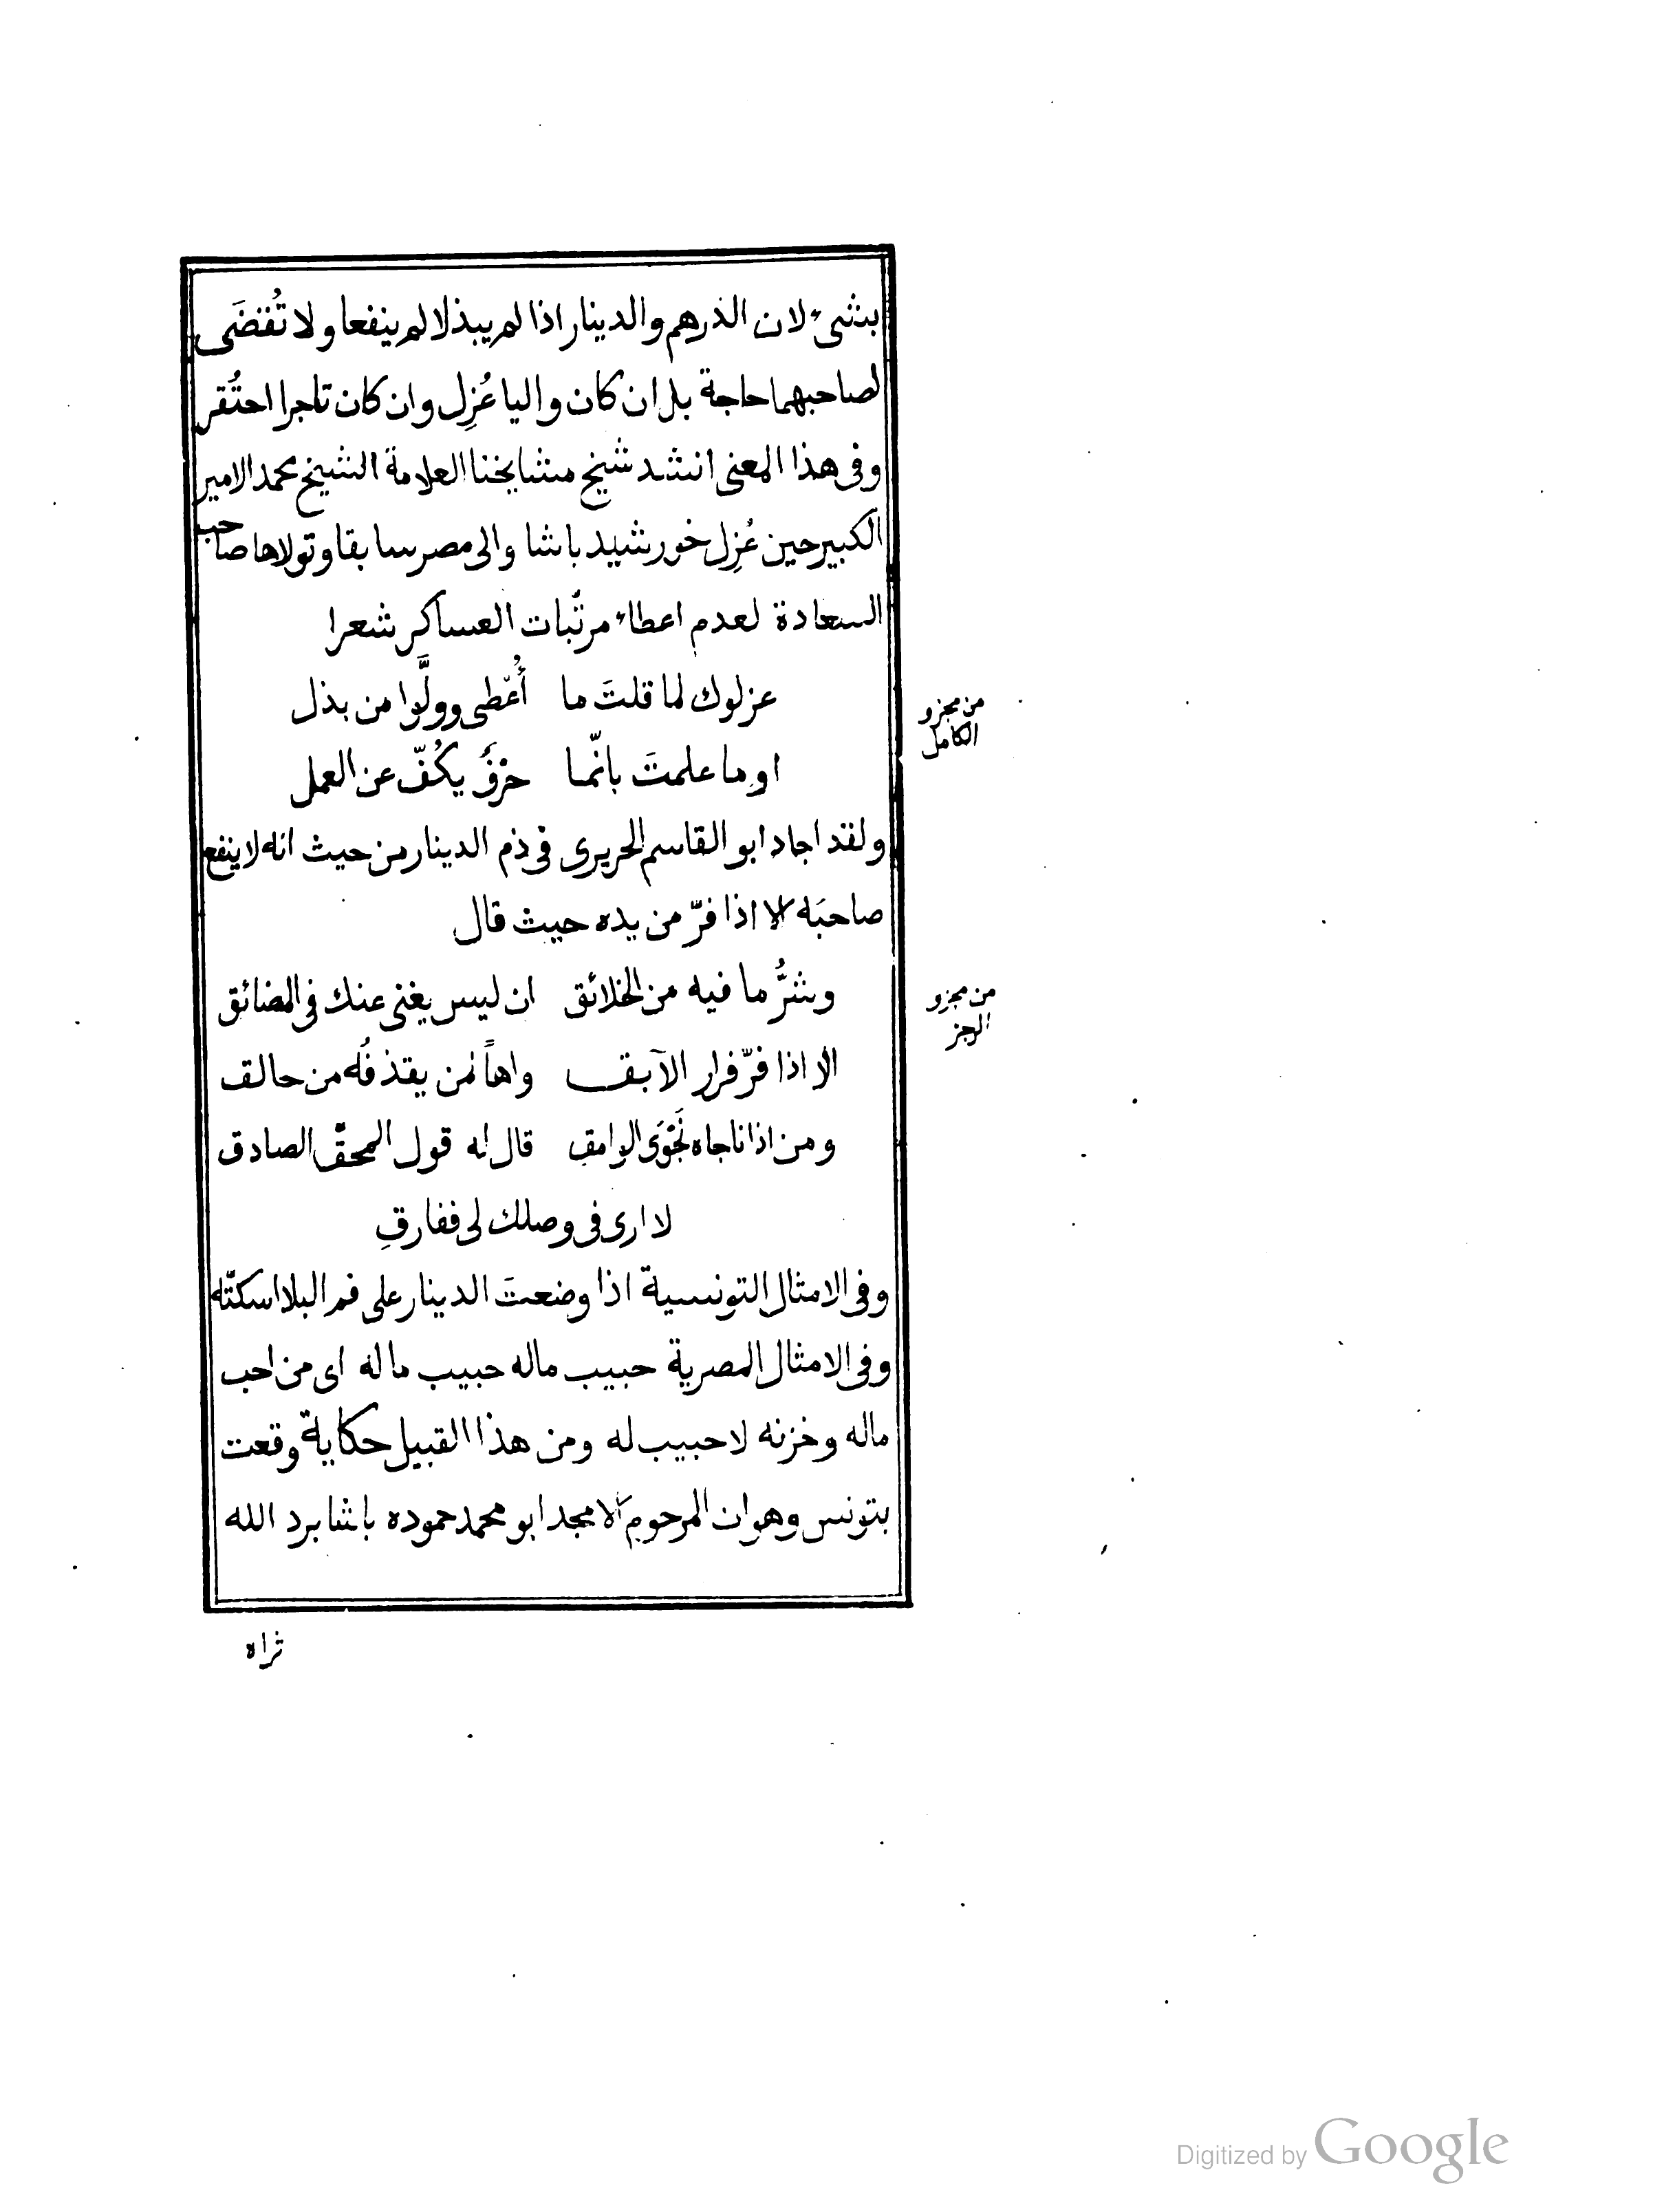 بشىء لان الدرهم والدينار اذا لم يبذلا لم ينفعا ولا تُقضَى
لصاحبهما حاجة بل ان كان واليا عُزِل وان كان تاجرا احتُقر
وفى هذا المعنى انشد شيخ مشايخنا العلامة الشيخ محمد الامير
الكبير حين عُزِل خورشيد باشا والى مصر سابقا وتولاها صاحب
السعادة لعدم اعطاء مرتّبات العساكر شعرا
عزلوك لما قلتَ ما أُعْطِى وولَّوا من بذل
من مجزو
الكامل
اوما علمتَ بانّما حرْفٌ يكُفّ عن العمل
ولقد اجاد ابو القاسم الحريرى فى ذم الدينار من حيث انه لا ينفع
صاحبَه الا اذا فرّ من يده حيث قال
وشرُّ ما فيه من الخلائق ان ليس يغنى عنك فى المضائق
من مجزو
الرجز
الا اذا فرّ فرار الآبق واهاً لمن يقذفُه من حالق
ومن اذا ناجاه نَجْوَى الوامق قال له قول المحقّ الصادق
لا ارى فى وصلك لى ففارقِ
وفى الامثال التونسية اذا وضعتَ الدينار على فم البلا اسكتّه
وفى الامثال المصرية حبيب ماله حبيب ماله اى من احب
ماله وخزنه لا حبيب له ومن هذا القبيل حكاية وقعت
بتونس وهو ان المرحوم الامجد ابو محمد حموده باشا برد الله
ثراه
Digitized by Google